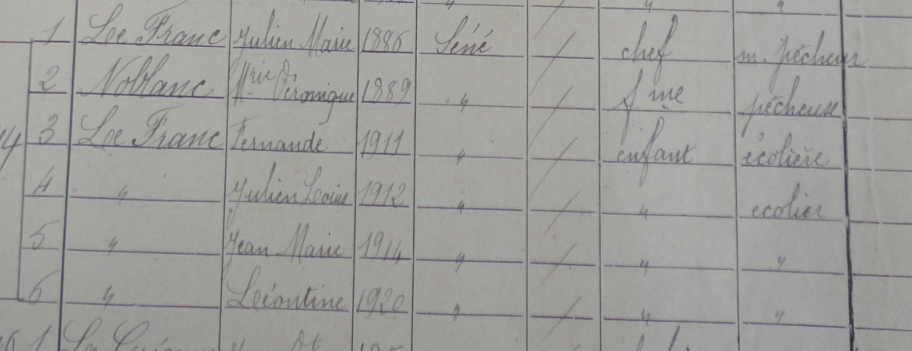 1 Le Franc Julien Marie 1886 Séné / chef m. pécheur
2 Noblanc Mrie Véronique 1889 " / fme pécheuse
3 Le Franc Fernande 1911 " / enfant écolière
4 " Julien Louis 1912 " / " ecolier
5 " Jean Marie 1914 " / " "
6 " Léontine 1920 " / " "
1